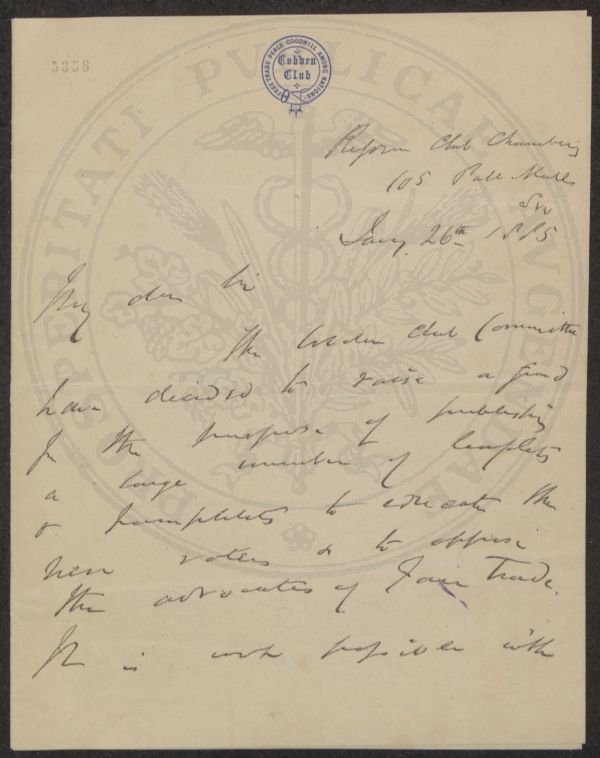 5358
FREE TRADE · PEACE · GOODWILL AMONG NATIONS
Cobden
Club
PROSPERITATI PUBLICAE AUGENDAE
Reform Club Chambers
105 Pall Mall
SW
Jany. 26th 1885
My dear Sir
The Cobden Club Committee
have decided to raise a fund
for the purpose of publishing
a large number of leaflets
& pamphlets to educate the
new voters & to oppose
the advocates of Fair Trade.
It is not possible with